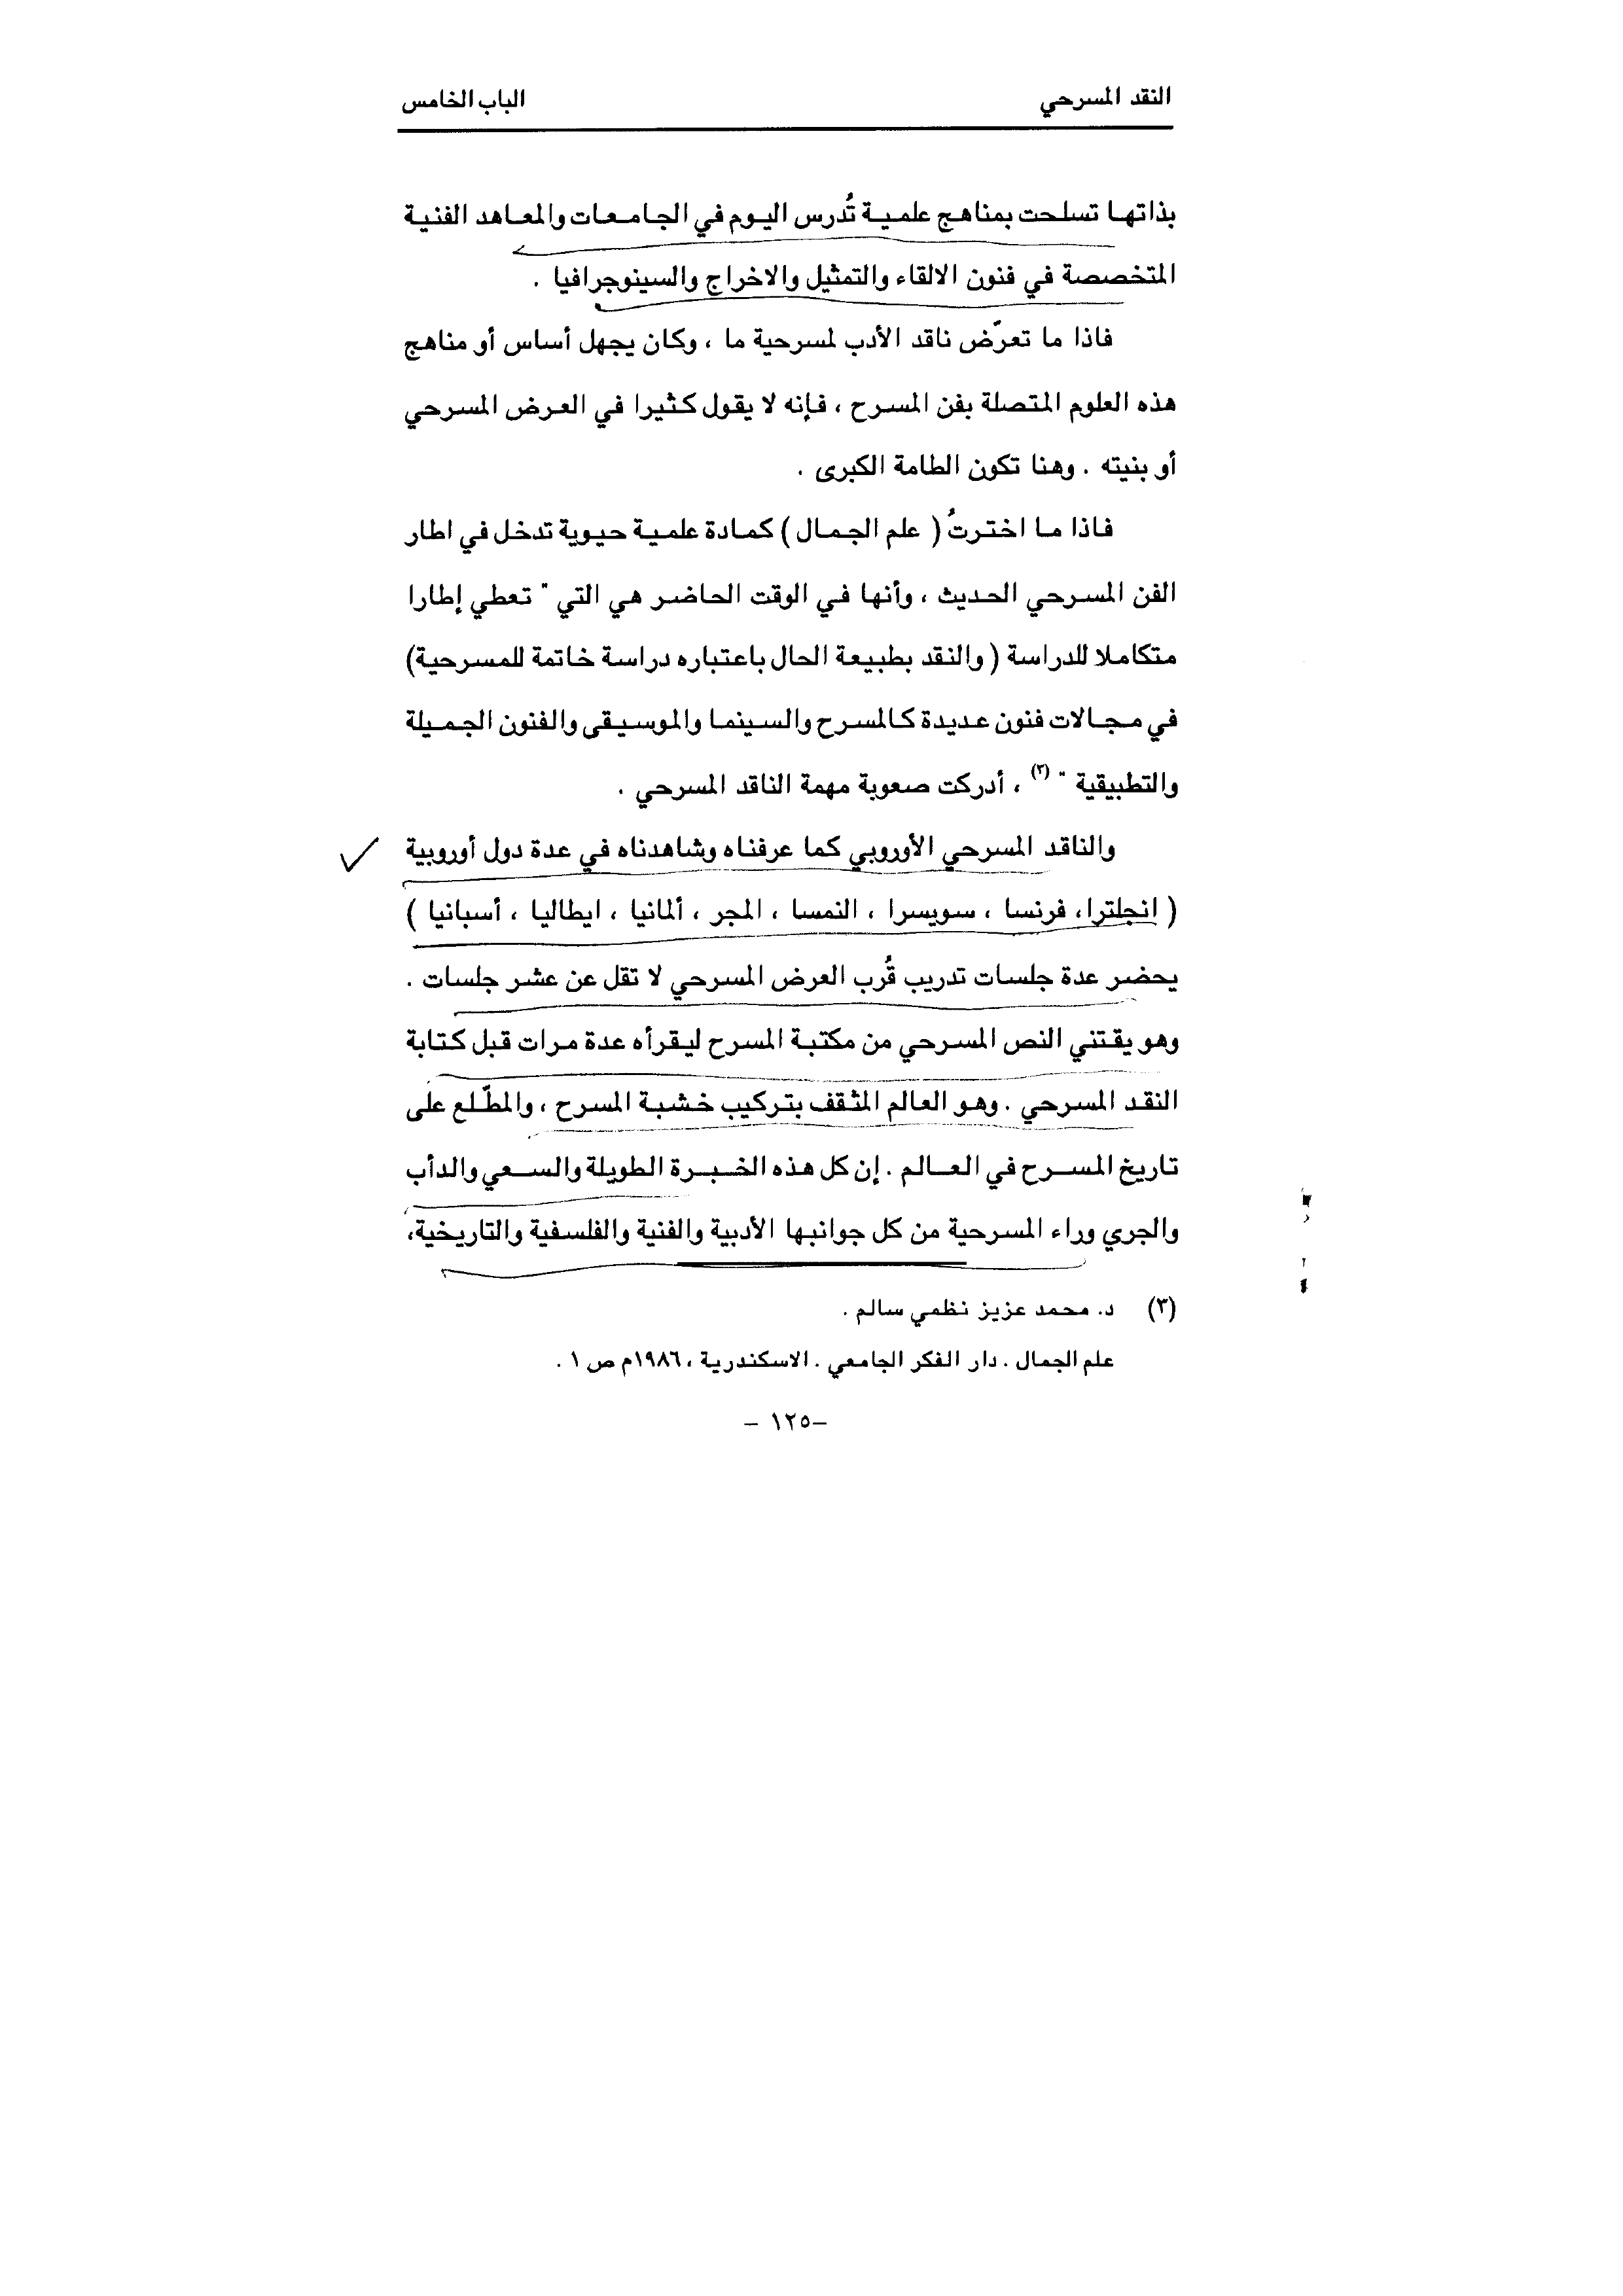 النقد المسرحي
الباب الخامس
بذاتها تسلحت بمناهج علمية تُدرس اليوم في الجامعات والمعاهد الفنية
المتخصصة في فنون الالقاء والتمثيل والاخراج والسينوجرافيا .
فاذا ما تعرّض ناقد الأدب لمسرحية ما ، وكان يجهل أساس أو مناهج
هذه العلوم المتصلة بفن المسرح ، فإنه لا يقول كثيرا في العرض المسرحي
أو بنيته . وهنا تكون الطامة الكبرى .
فاذا ما اخترتُ ( علم الجمال ) كمادة علمية حيوية تدخل في اطار
الفن المسرحي الحديث ، وأنها في الوقت الحاضر هي التي " تعطي إطارا
متكاملا للدراسة ( والنقد بطبيعة الحال باعتباره دراسة خاتمة للمسرحية)
في مجالات فنون عديدة كالمسرح والسينما والموسيقى والفنون الجميلة
والتطبيقية " (٣) ، أدركت صعوبة مهمة الناقد المسرحي .
والناقد المسرحي الأوروبي كما عرفناه وشاهدناه في عدة دول أوروبية
( انجلترا، فرنسا ، سويسرا ، النمسا ، المجر ، ألمانيا ، ايطاليا ، أسبانيا )
يحضر عدة جلسات تدريب قُرب العرض المسرحي لا تقل عن عشر جلسات .
وهو يقتني النص المسرحي من مكتبة المسرح ليقرأه عدة مرات قبل كتابة
النقد المسرحي . وهو العالم المثقف بتركيب خشبة المسرح ، والمطّلع على
تاريخ المسرح في العالم . إن كل هذه الخبرة الطويلة والسعي والدأب
والجري وراء المسرحية من كل جوانبها الأدبية والفنية والفلسفية والتاريخية،
(٣) د. محمد عزيز نظمي سالم .
علم الجمال . دار الفكر الجامعي . الاسكندرية ، ١٩٨٦م ص ١ .
–١٢٥ –